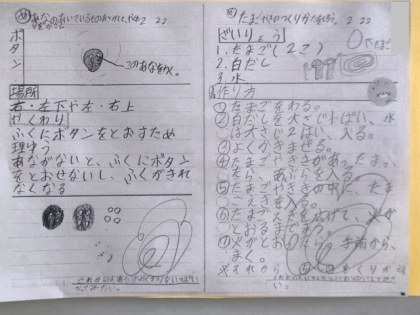 2 22
ボタン
このあなをかく。
場所
右・左下や左・右上
やくわり
ふくにボタンをとおすため
理ゆう
あながないと、ふくにボタン
をとおせないし、ふくがきれ
なくなる
たまごやきのつくりかたをかこう。 2 22
ざいりょう
1.たまご(2こ)
2.白だし
3.水
作り方
①たまごをわる。
②白だしを大さじ1ぱい、水
は大さじ2はい、入る。
③よくかきまぜる。
④たまごやききがあったまっ
たら、あぶらを入る。
⑤たまごやききの中に、たま
ごえきを入る。
⑥たまごえきを広げて、火が
とおるまでまつ。
⑦火がとおったら、手前から、
まく。
※それから